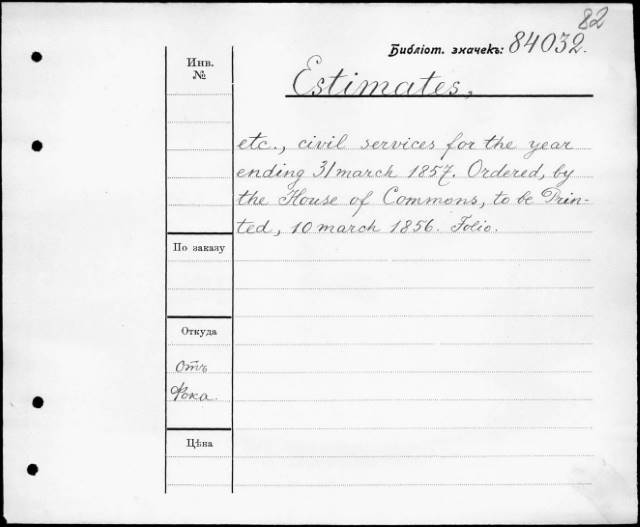 82
Библіот. значекъ: 84032.
Инв.
№
Estimates,
etc., civil services for the year
ending 31 march 1857. Ordered, by
the House of Commons, to be Prin-
ted, 10 march 1856. Folio.
По заказу
Откуда
отъ
Фока
Цѣна